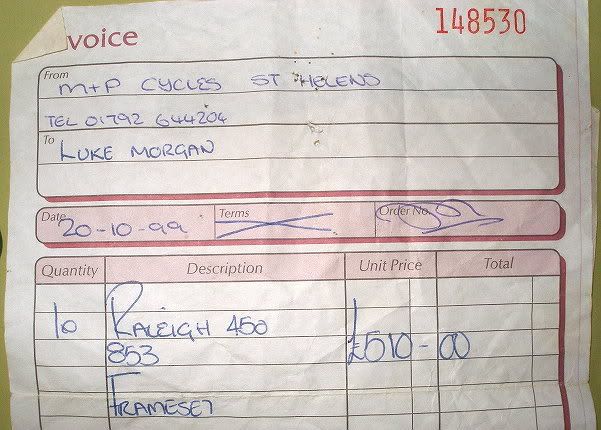 voice 148530
From M+P CYCLES ST HELENS
TEL 01792 644204
To LUKE MORGAN
Date 20-10-99 Terms Order No.
Quantity Description Unit Price Total
10 RALEIGH 450
853 £510-00
FRAMESET